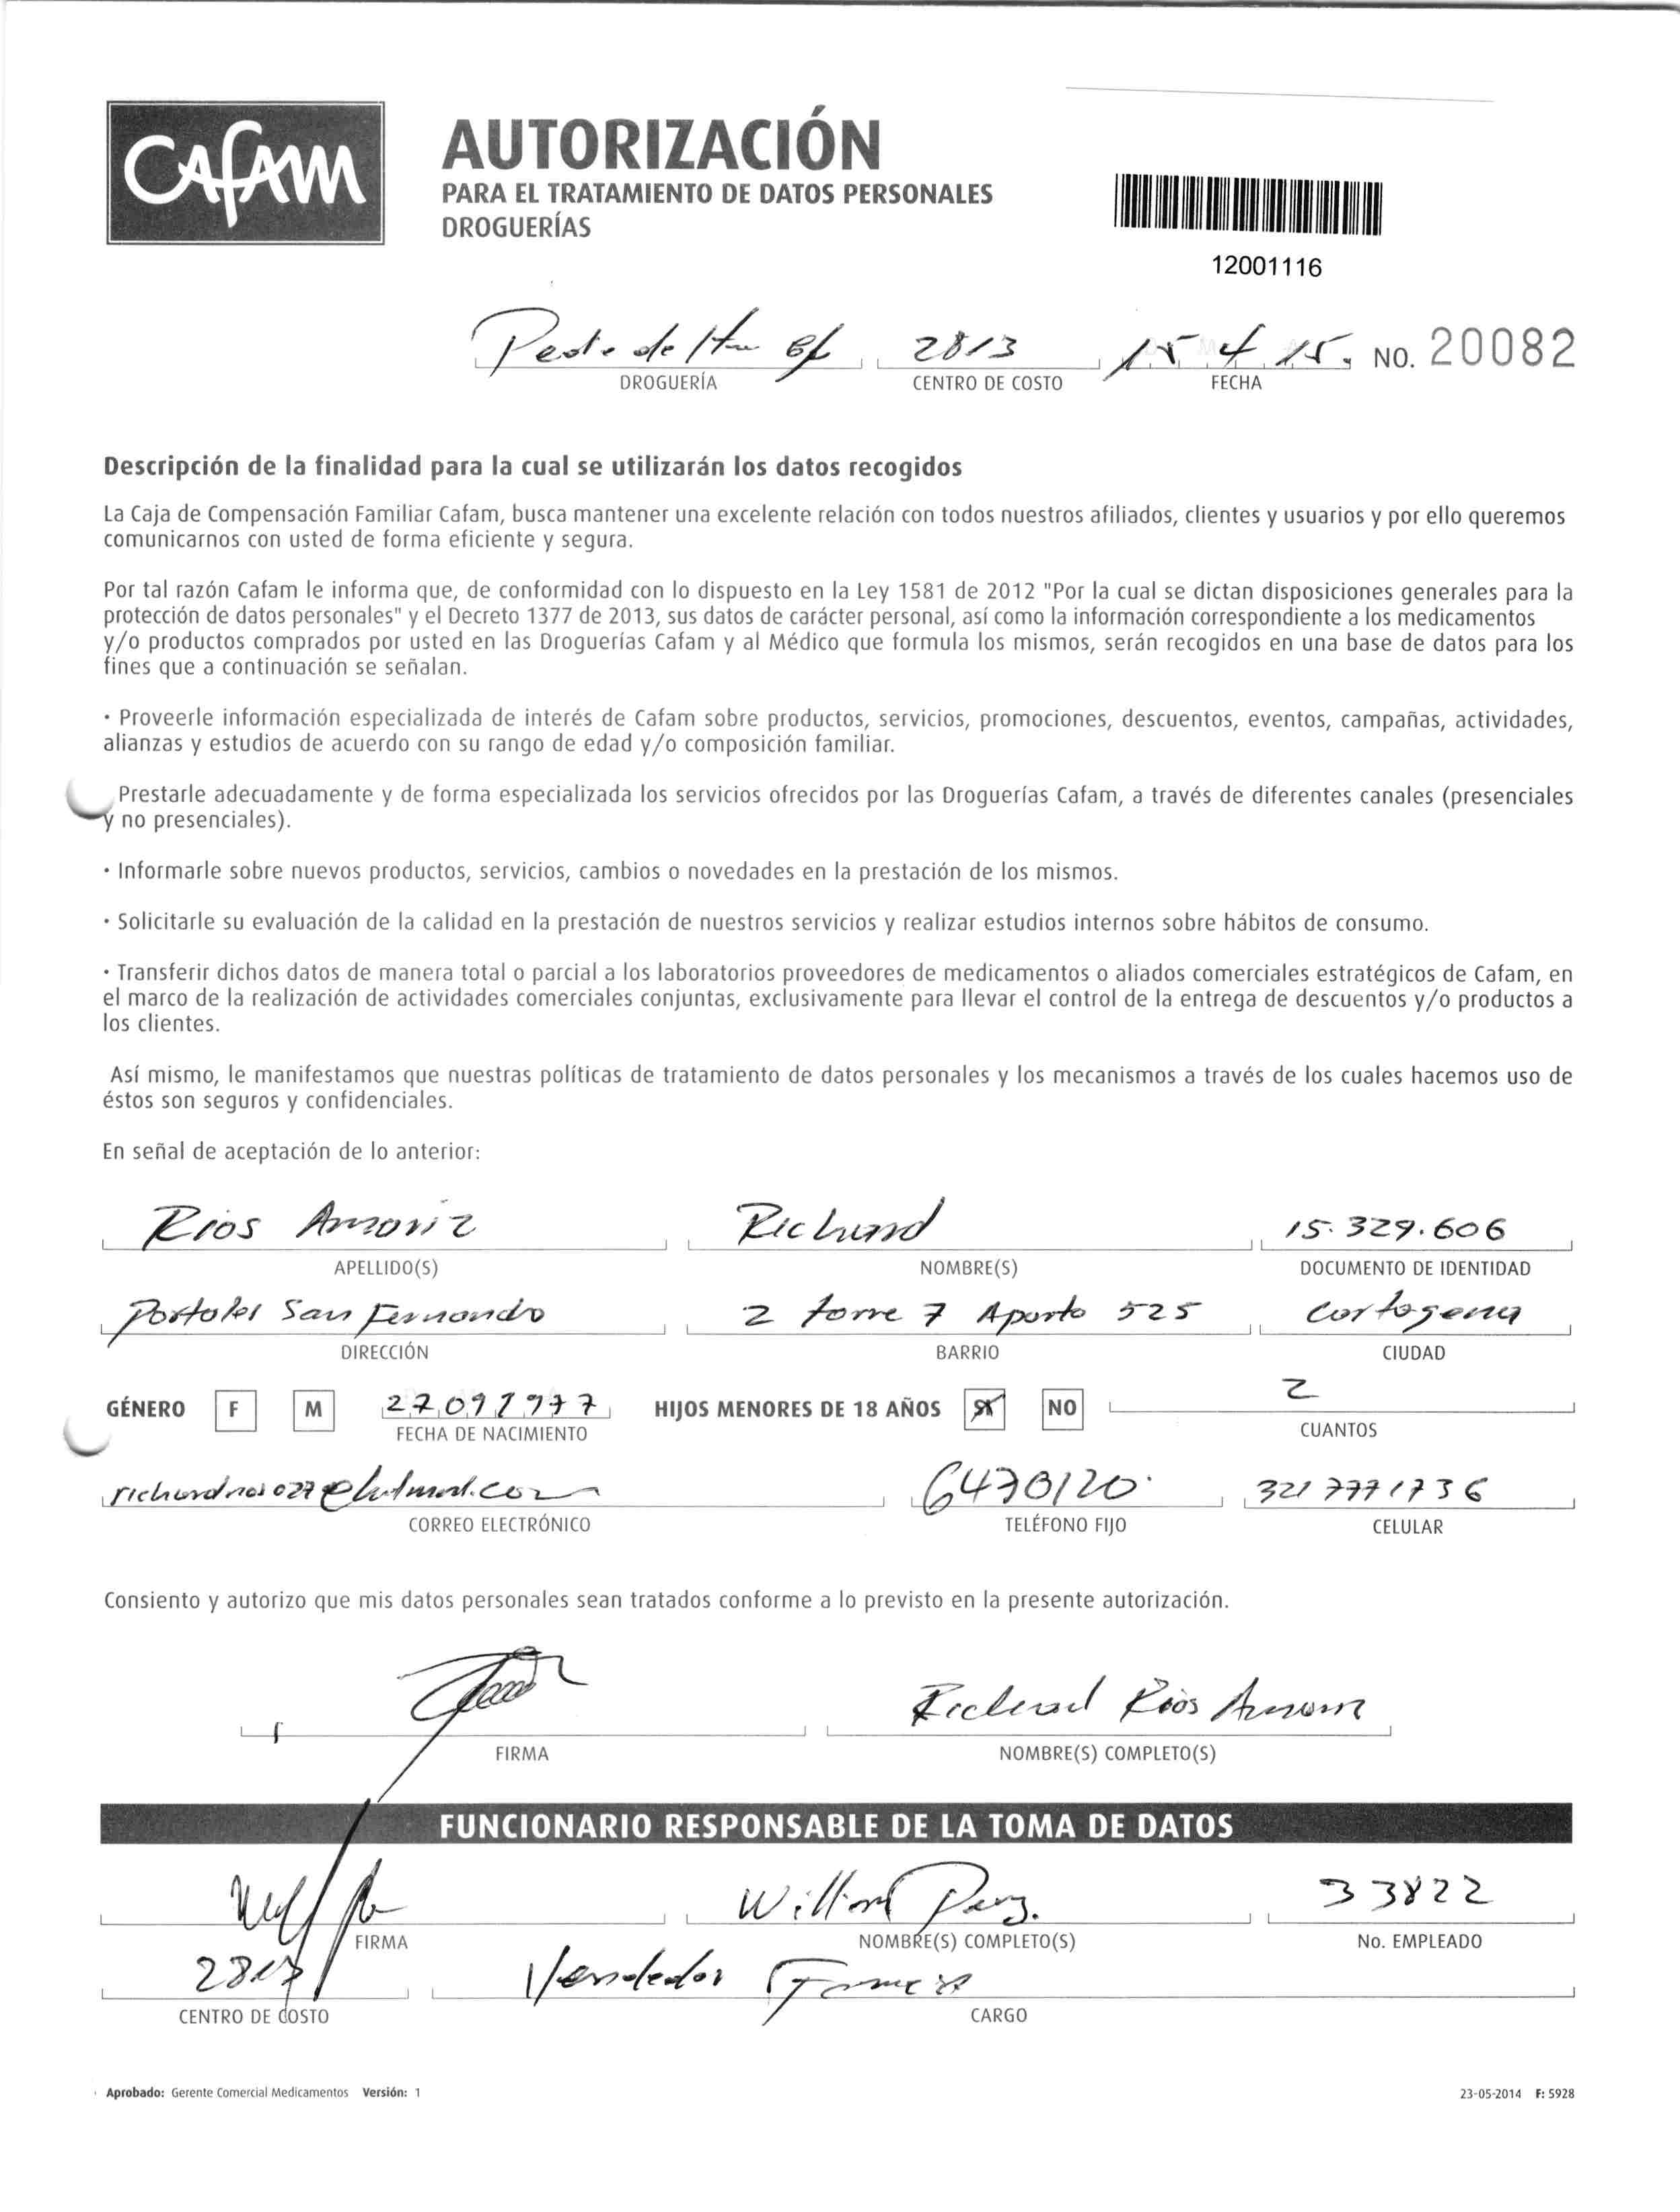 CAFAM
AUTORIZACIÓN
PARA EL TRATAMIENTO DE DATOS PERSONALES
DROGUERÍAS
12001116
2813 15 4 15. NO. 20082
DROGUERÍA CENTRO DE COSTO FECHA
Descripción de la finalidad para la cual se utilizarán los datos recogidos
La Caja de Compensación Familiar Cafam, busca mantener una excelente relación con todos nuestros afiliados, clientes y usuarios y por ello queremos
comunicarnos con usted de forma eficiente y segura.
Por tal razón Cafam le informa que, de conformidad con lo dispuesto en la Ley 1581 de 2012 "Por la cual se dictan disposiciones generales para la
protección de datos personales" y el Decreto 1377 de 2013, sus datos de carácter personal, así como la información correspondiente a los medicamentos
y/o productos comprados por usted en las Droguerías Cafam y al Médico que formula los mismos, serán recogidos en una base de datos para los
fines que a continuación se señalan.
· Proveerle información especializada de interés de Cafam sobre productos, servicios, promociones, descuentos, eventos, campañas, actividades,
alianzas y estudios de acuerdo con su rango de edad y/o composición familiar.
Prestarle adecuadamente y de forma especializada los servicios ofrecidos por las Droguerías Cafam, a través de diferentes canales (presenciales
y no presenciales).
· Informarle sobre nuevos productos, servicios, cambios o novedades en la prestación de los mismos.
· Solicitarle su evaluación de la calidad en la prestación de nuestros servicios y realizar estudios internos sobre hábitos de consumo.
· Transferir dichos datos de manera total o parcial a los laboratorios proveedores de medicamentos o aliados comerciales estratégicos de Cafam, en
el marco de la realización de actividades comerciales conjuntas, exclusivamente para llevar el control de la entrega de descuentos y/o productos a
los clientes.
Así mismo, le manifestamos que nuestras políticas de tratamiento de datos personales y los mecanismos a través de los cuales hacemos uso de
éstos son seguros y confidenciales.
En señal de aceptación de lo anterior:
Rios Richard 15.329.606
APELLIDO(S) NOMBRE(S) DOCUMENTO DE IDENTIDAD
Portales San Fernando 2 torre 7 Aparto 525 Cartagena
DIRECCIÓN BARRIO CIUDAD
GÉNERO F M 27091977 HIJOS MENORES DE 18 AÑOS SI NO 2
FECHA DE NACIMIENTO CUANTOS
richardrios027@hotmail.com 6470120 321 7771736
CORREO ELECTRÓNICO TELÉFONO FIJO CELULAR
Consiento y autorizo que mis datos personales sean tratados conforme a lo previsto en la presente autorización.
Richard Rios
FIRMA NOMBRE(S) COMPLETO(S)
FUNCIONARIO RESPONSABLE DE LA TOMA DE DATOS
33822
FIRMA NOMBRE(S) COMPLETO(S) No. EMPLEADO
Vendedor
CENTRO DE COSTO CARGO
Aprobado: Gerente Comercial Medicamentos Versión: 1 23-05-2014 F: 5928